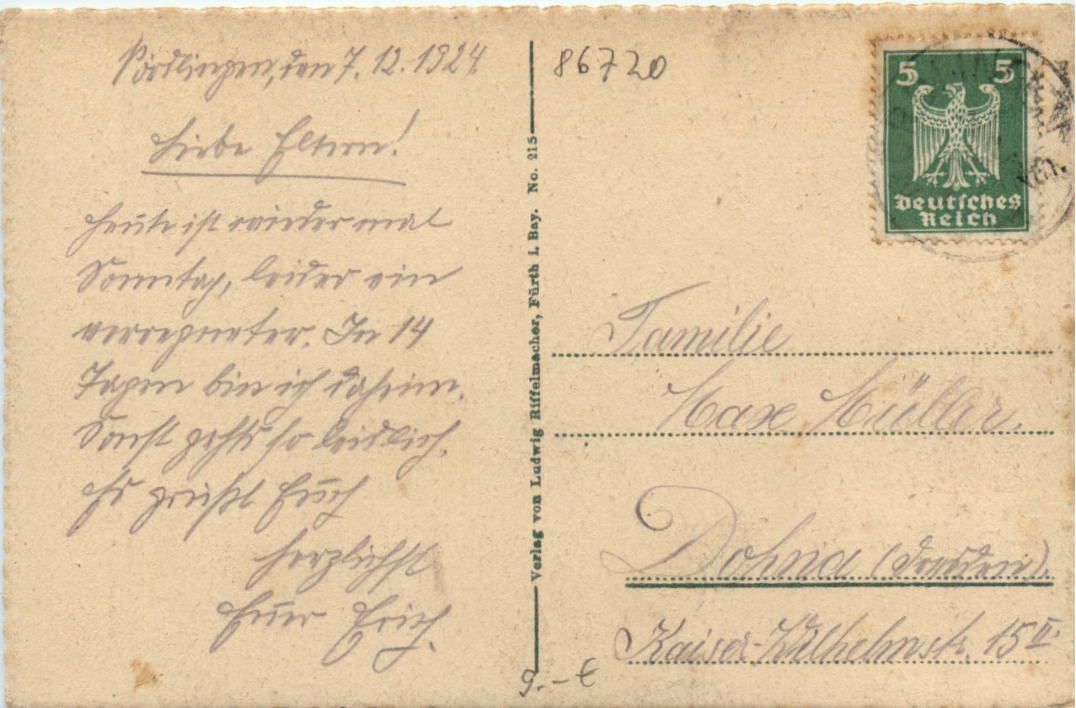 Nördlingen, den 7.12.1924
Liebe Eltern!
Heute ist wieder mal
Sonntag, leider ein
verregneter. In 14
Tagen bin ich daheim.
Sonst gehts so leidlich.
Es grüßt Euch
herzlichst
Euer Erich.
Verlag von Ludwig Riffelmacher, Fürth i. Bay. No. 215
86720
5 5
Deutsches
Reich
Familie
Max Müller.
Dohna (Dresden).
Kaiser-Wilhelmstr. 15 II
9.-- €